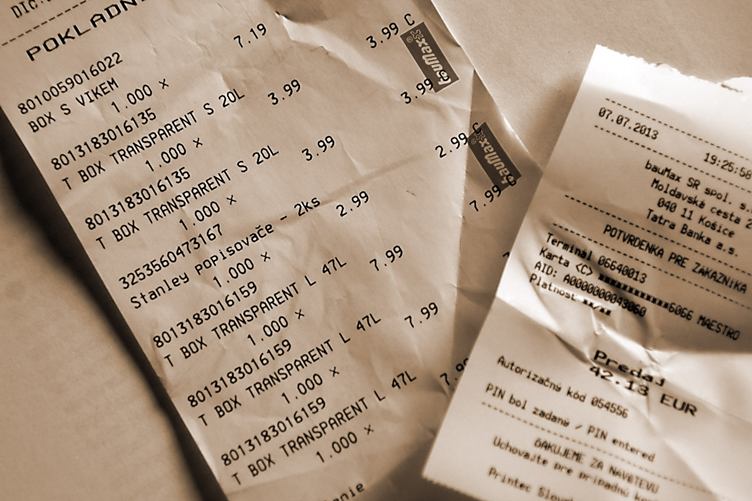 DIČ:
8010059016022
BOX S VIKEM
1.000 x 7.19
8013183016135
T BOX TRANSPARENT S 20L
1.000 x 3.99 3.99 C
8013183016135
T BOX TRANSPARENT S 20L
1.000 x 3.99 3.99
3253560473167
Stanley popisovače - 2ks
1.000 x 2.99 2.99 C
8013183016159
T BOX TRANSPARENT L 47L
1.000 x 7.99 7.99
8013183016159
T BOX TRANSPARENT L 47L
1.000 x 7.99
8013183016159
T BOX TRANSPARENT L 47L
1.000 x
bauMax
bauMax
07.07.2013 19:25:58
bauMax SR spol. s.
Moldavská cesta
040 11 Košice
Tatra Banka a.s.
POTVRDENKA PRE ZÁKAZNÍKA
Terminál 06640013
Karta <C> xxxxxxxxxxxx6066 MAESTRO
AID: A0000000043060
Platnosť xx/xx
Predaj
42.13 EUR
Autorizačný kód 054556
PIN bol zadaný / PIN entered
ĎAKUJEME ZA NÁVŠTEVU
Uchovajte pre prípadnú
Printec